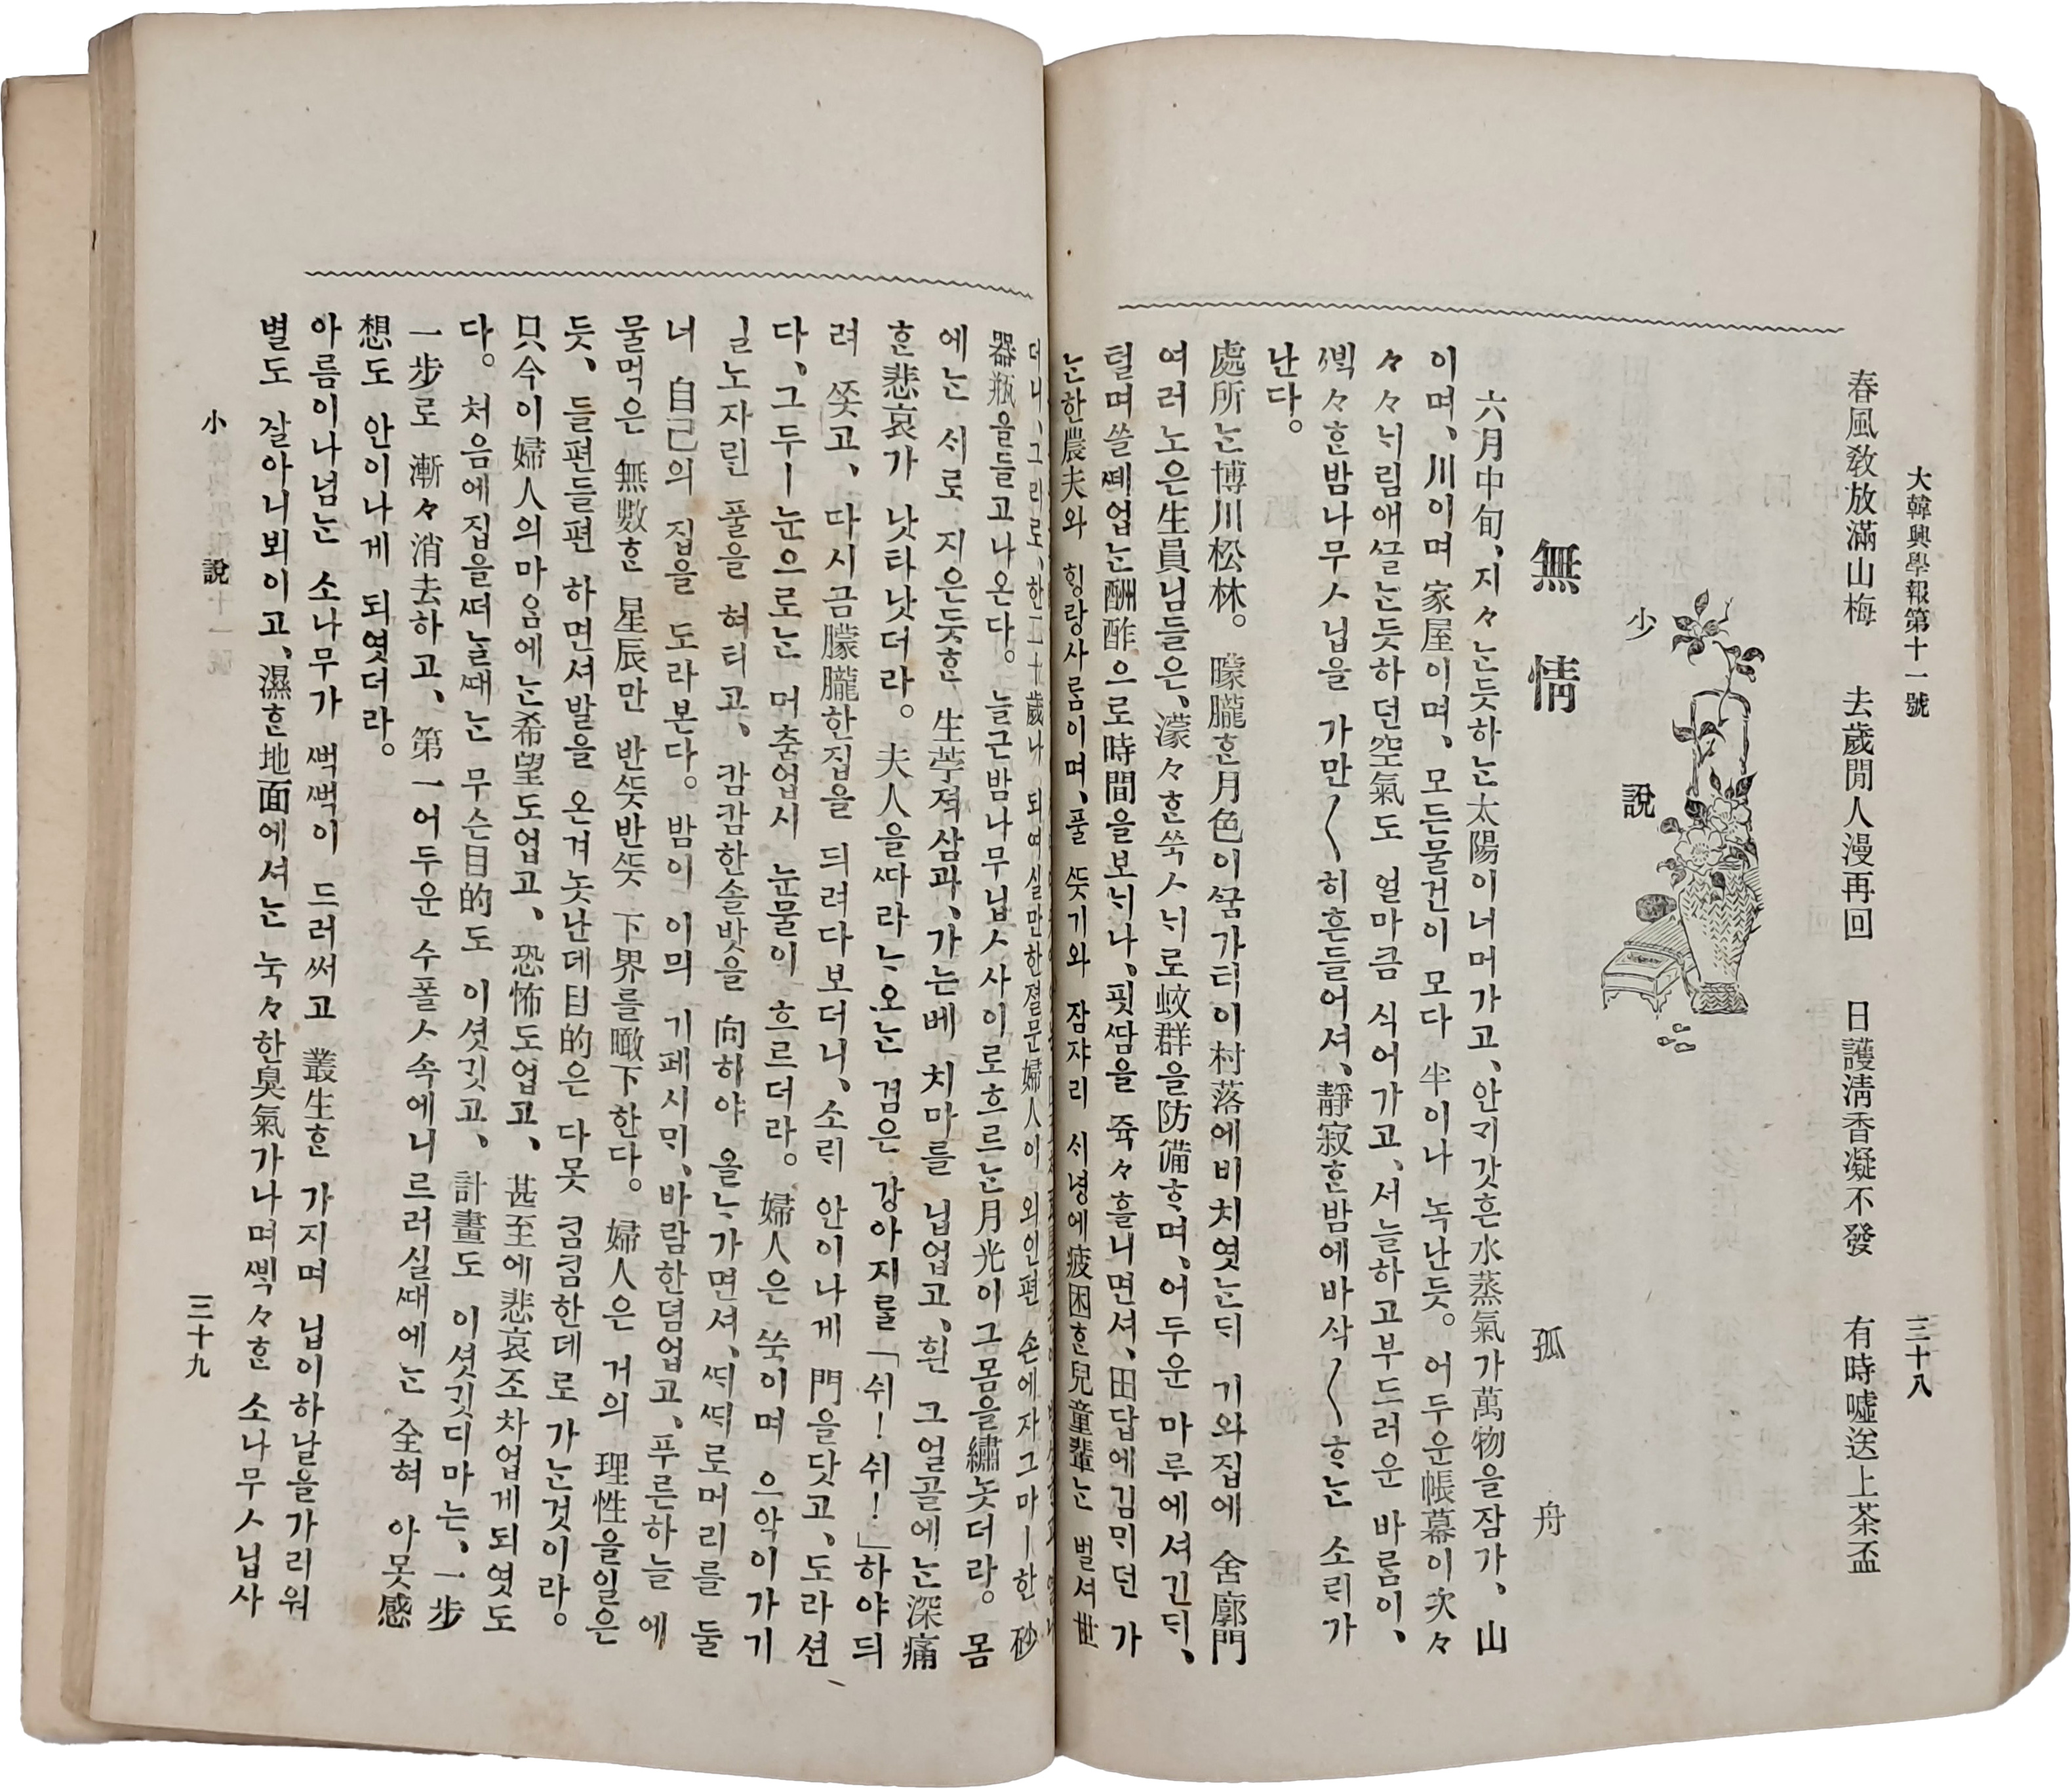 大韓興學報第十一號
三十八
春風教放滿山梅 去歲閒人漫再回 日護淸香凝不發 有時噓送上茶盃
小 說
無 情
孤 舟
六月中旬、지々는듯하는太陽이너머가고、안기갓흔水蒸氣가萬物을잠가、山
이며、川이며 家屋이며、모든물건이 모다 半이나 녹난듯。어두운帳幕이次々
々々늬림애끌는듯하던空氣도 얼마큼 식어가고、서늘하고부드러운 바ᄅᆞᆷ이、
ᄲᅢᆨ々ᄒᆞᆫ밤나무ㅅ닙을 가만〱히흔들어셔、靜寂ᄒᆞᆫ밤에바삭〱ᄒᆞ는 소ᄅᆡ가
난다。
處所는博川松林。 曚朧ᄒᆞᆫ月色이ᄭᅮᆷ가티이村落에비치엿는ᄃᆡ 기와집에 舍廊門
여러노은生員님들은、濛々ᄒᆞᆫ쑥ㅅᄂᆡ로蚊群을防備ᄒᆞ며、어두운 마루에셔긴ᄃᆡ、
털며쓸ᄯᅦ업는酬酢으로時間을보ᄂᆡ나、핏ᄯᅡᆷ을 쥭々흘니면셔、田답에김ᄆᆡ던 가
는한農夫와 ᄒᆡᆼ랑사ᄅᆞᆷ이며、풀ᄯᅳᆺ기와 잠쟈리 ᄉᆡ녕에疲困ᄒᆞᆫ兒童輩는 벌셔世
器甁을들고나온다。 늘근밤나무닙ㅅ사이로흐르는月光이그몸을繡놋더라。몸
에는 ᄉᆡ로 지은듯ᄒᆞᆫ 生苧젹삼과、가는베 치마를 닙업고、흰 그얼골에는深痛
ᄒᆞᆫ悲哀가 낫타낫더라。 夫人을ᄯᅡ라ᄂᆞ오는 검은 강아지를「쉬！쉬！」하야듸
려 ᄶᅩᆺ고、다시금朦朧한집을 듸려다보더니、소ᄅᆡ 안이나게 門을닷고、도라션
다、그두ㅣ눈으로는 머춤업시 눈물이 흐르더라。婦人은 쑥이며 으악이가기
ᄭᅵᆯ노자린 풀을 혀티고、캄캄한솔밧을 向하야 올ᄂᆞ가면셔、ᄯᆡᄯᆡ로머리를 둘
너 自己의 집을 도라본다。밤이 이믜 기폐시ᄆᆡ、바람한뎜업고、푸른하늘 에
물먹은 無數ᄒᆞᆫ 星辰만 반ᄯᅳᆺ반ᄯᅳᆺ 下界를瞰下한다。 婦人은 거의 理性을일은
듯、들편들편 하면셔발을 온겨놋난데目的은 다못 ᄏᆞᆷᄏᆞᆷ한데로 가는것이라。
只今이婦人의마음에는希望도업고、恐怖도업고、甚至에悲哀조차업게되엿도
다。처음에집을ᄯᅥ날ᄯᅢ는 무슨目的도 이셧깃고、計畫도 이셧깃디마는、一步
一步로 漸々消去하고、第一어두운 수폴ㅅ속에니르러실ᄯᅢ에는 全혀 아못感
想도 안이나게 되엿더라。
아름이나넘는 소나무가 ᄲᅥᆨᄲᅥᆨ이 드러써고 叢生ᄒᆞᆫ 가지며 닙이하날을가리워
별도 잘아니뵈이고、濕ᄒᆞᆫ地面에셔는 눅々한臭氣가나며ᄲᅢᆨ々ᄒᆞᆫ 소나무ㅅ닙사
小 說
三十九